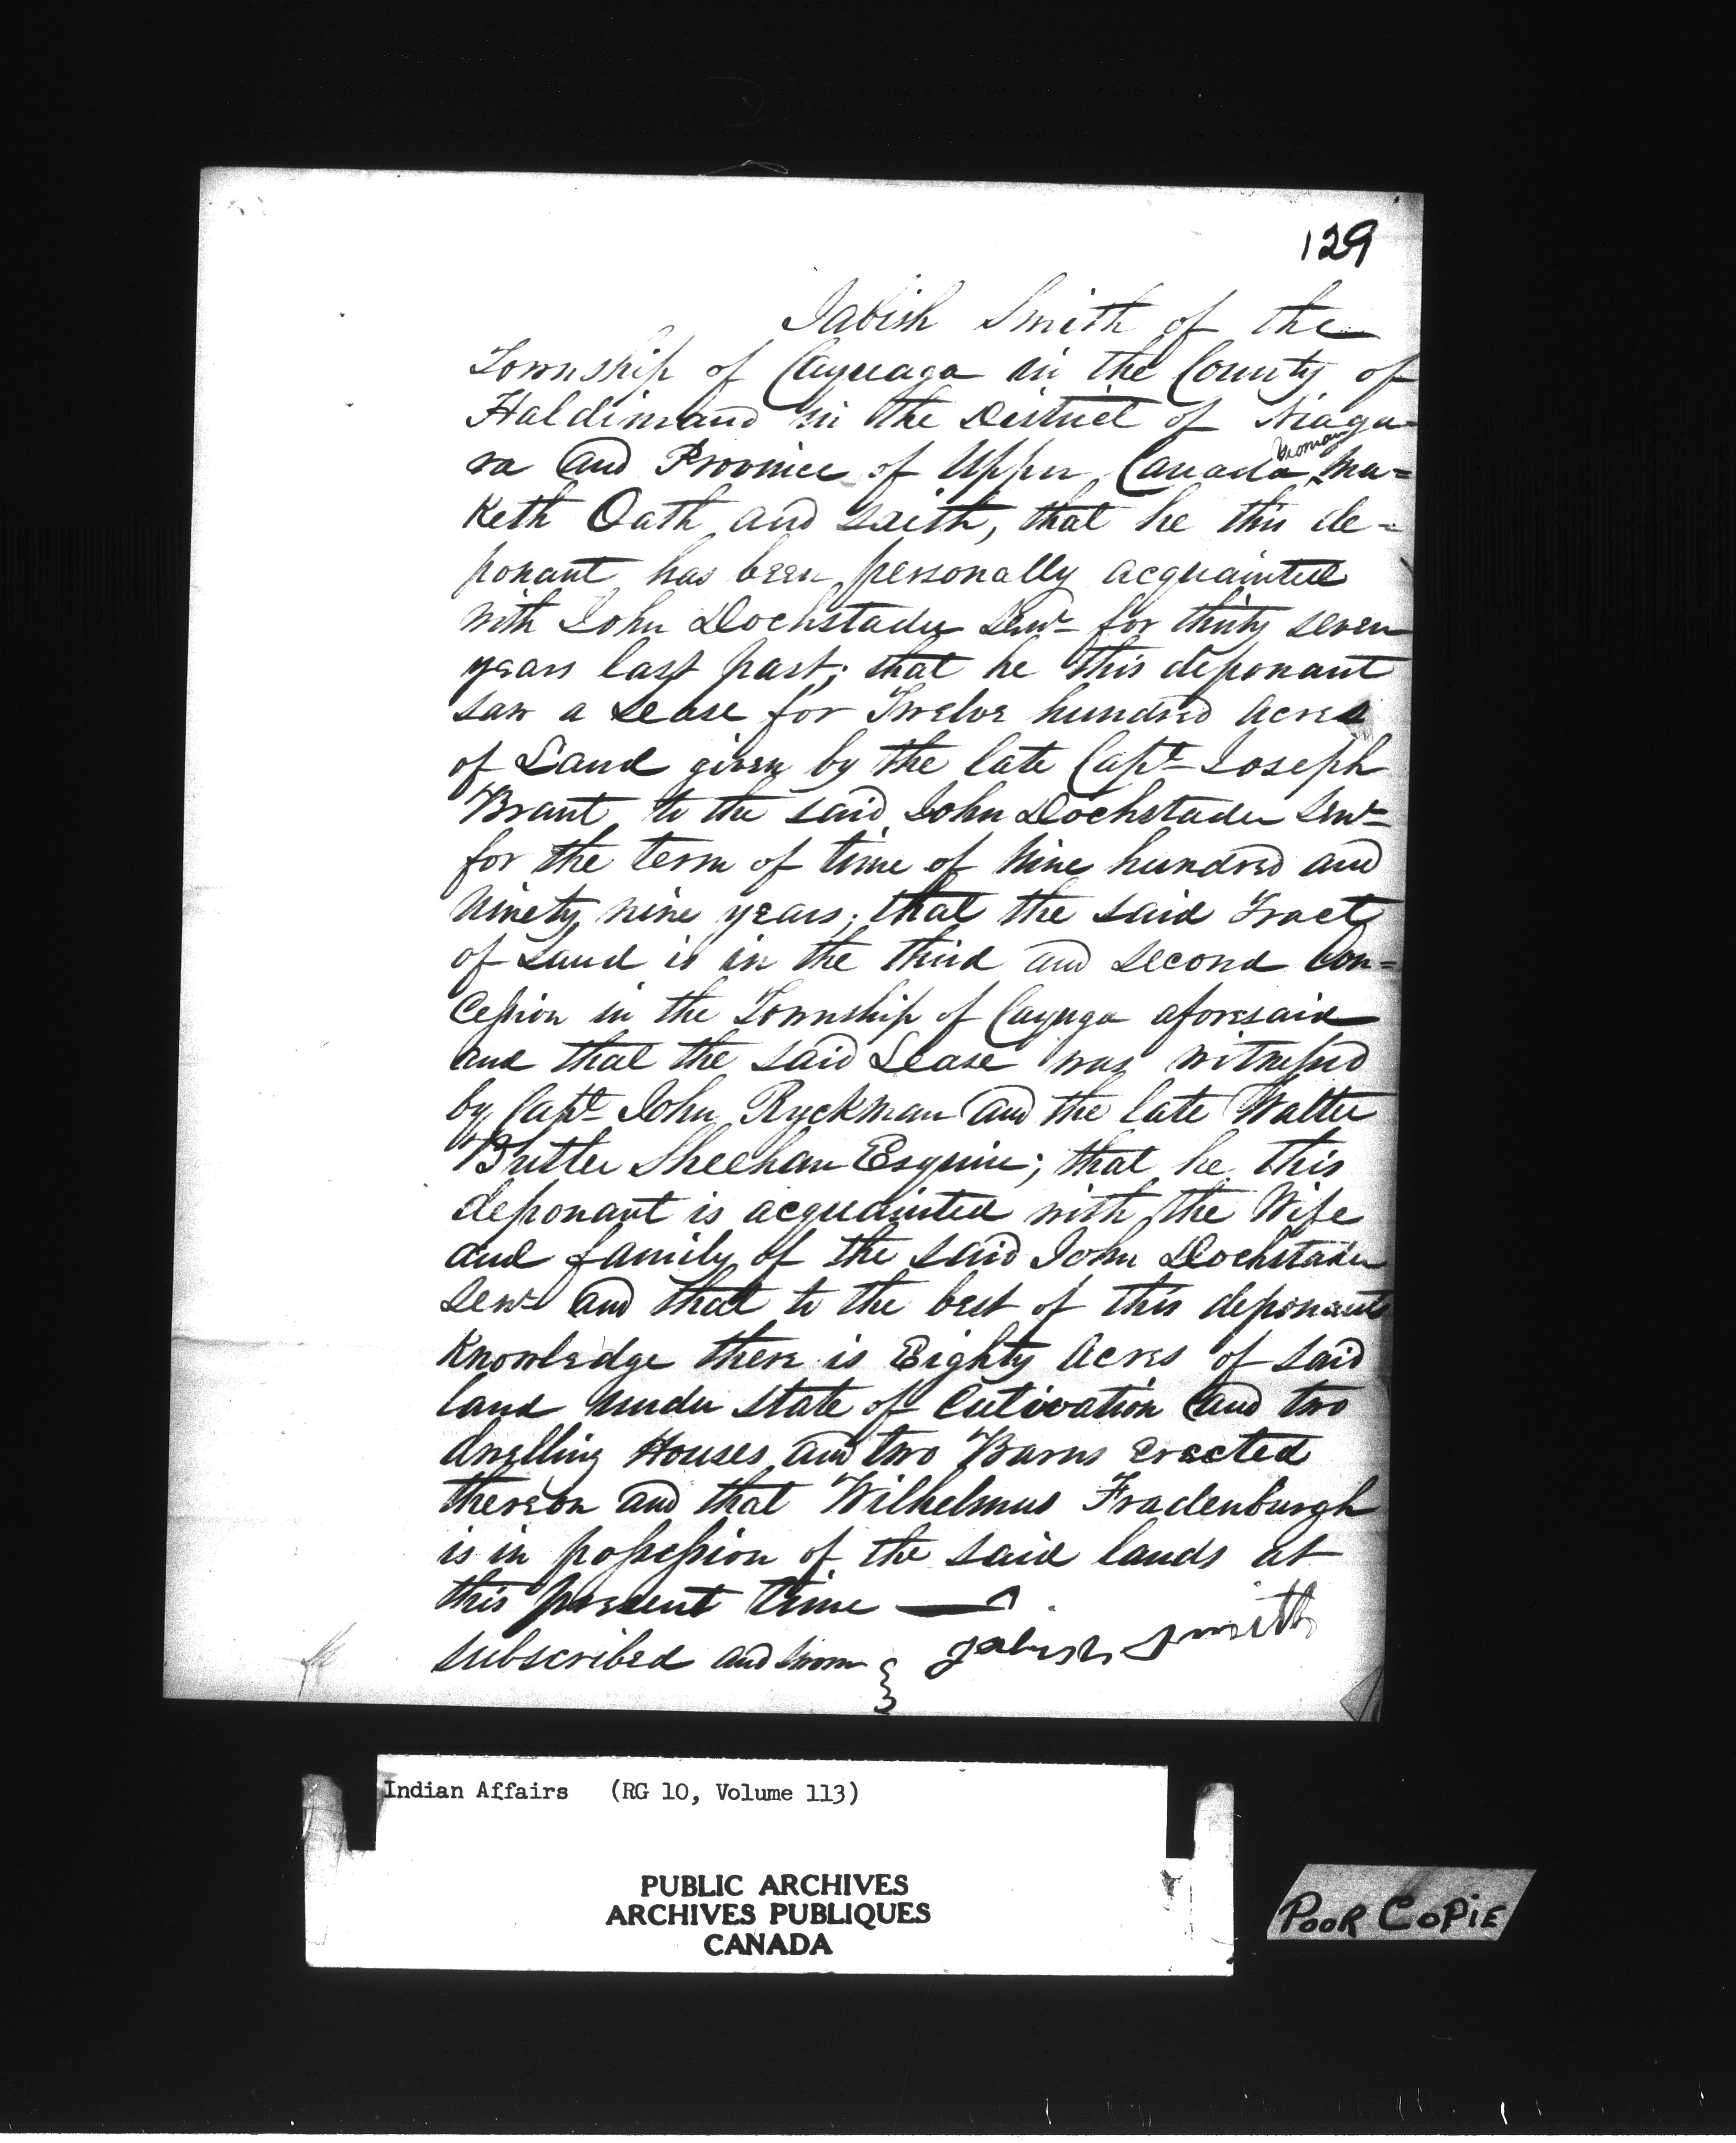 129
Jabish Smith of the
Township of Cayuaga in the County of
Haldimand in the District of Niaga-
ra and Province of Upper Canada Yeoman ma=
keth Oath and saith, that he this de=
ponant has been personally acquainted
with John Dochstader Senr for thirty seven
years last past; that he this deponant
saw a Lease for Twelve hundred acres
of Land given by the late Capt Joseph
Brant to the said John Dochstader Senr
for the term of time of Nine hundred and
Ninety nine years; that the said Tract
of Land is in the third and second Con=
cession in the Township of Cayuga aforesaid
and that the said Lease was witnessed
by Capt John Ryckman and the late Walter
Butler Sheehan Esquire; that he this
deponant is acquainted with the Wife
and family of the said John Dochstader
Senr and that to the best of this deponants
Knowledge there is Eighty Acres of said
land under state of Cultivation and two
dwelling Houses and two Barns erected
thereon and that Wilhelmus Fradenburgh
is in possession of the said lands at
this present time
subscribed and sworn Jabish Smith
Indian Affairs (RG 10, Volume 113)
PUBLIC ARCHIVES
ARCHIVES PUBLIQUES
CANADA
POOR COPIE